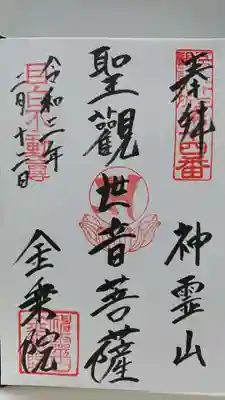 奉拝
神霊山
聖觀世音菩薩
令和二年
二月十二日
金乗院
目白不動尊